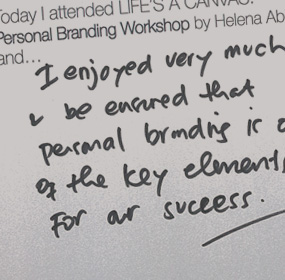 Today I attended LIFE'S A CANVAS:
Personal Branding Workshop by Helena Ab
and...
I enjoyed very much
& be ensured that
personal branding is o
of the key elements
For our success.